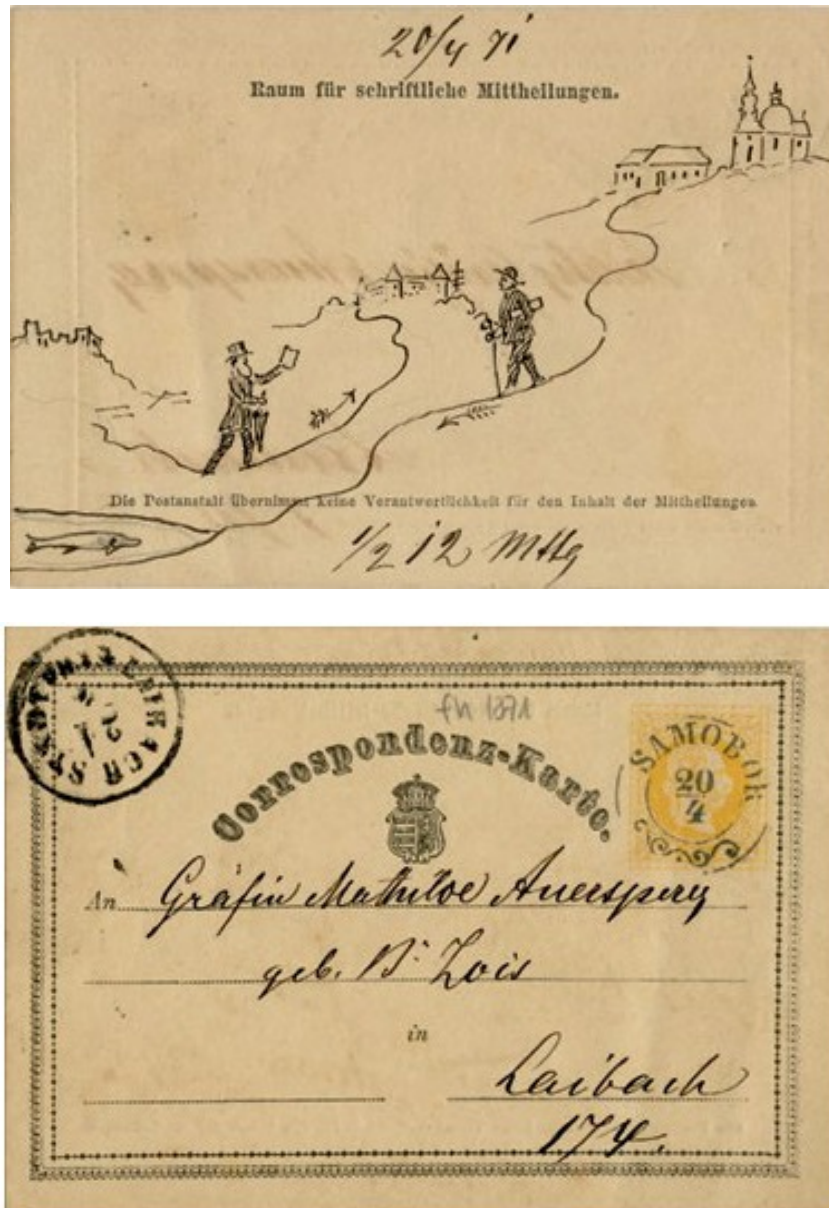 20/4 71
Raum für schriftliche Mittheilungen.
Die Postanstalt übernimmt keine Verantwortlichkeit für den Inhalt der Mittheilungen
1/2 12 Mttg
LAIBACH
fh 1871
Correspondenz-Karte.
SAMOBOR
20
4
An Gräfin Mathilde Auersperg
geb. Bn Zois
in
Laibach
174.